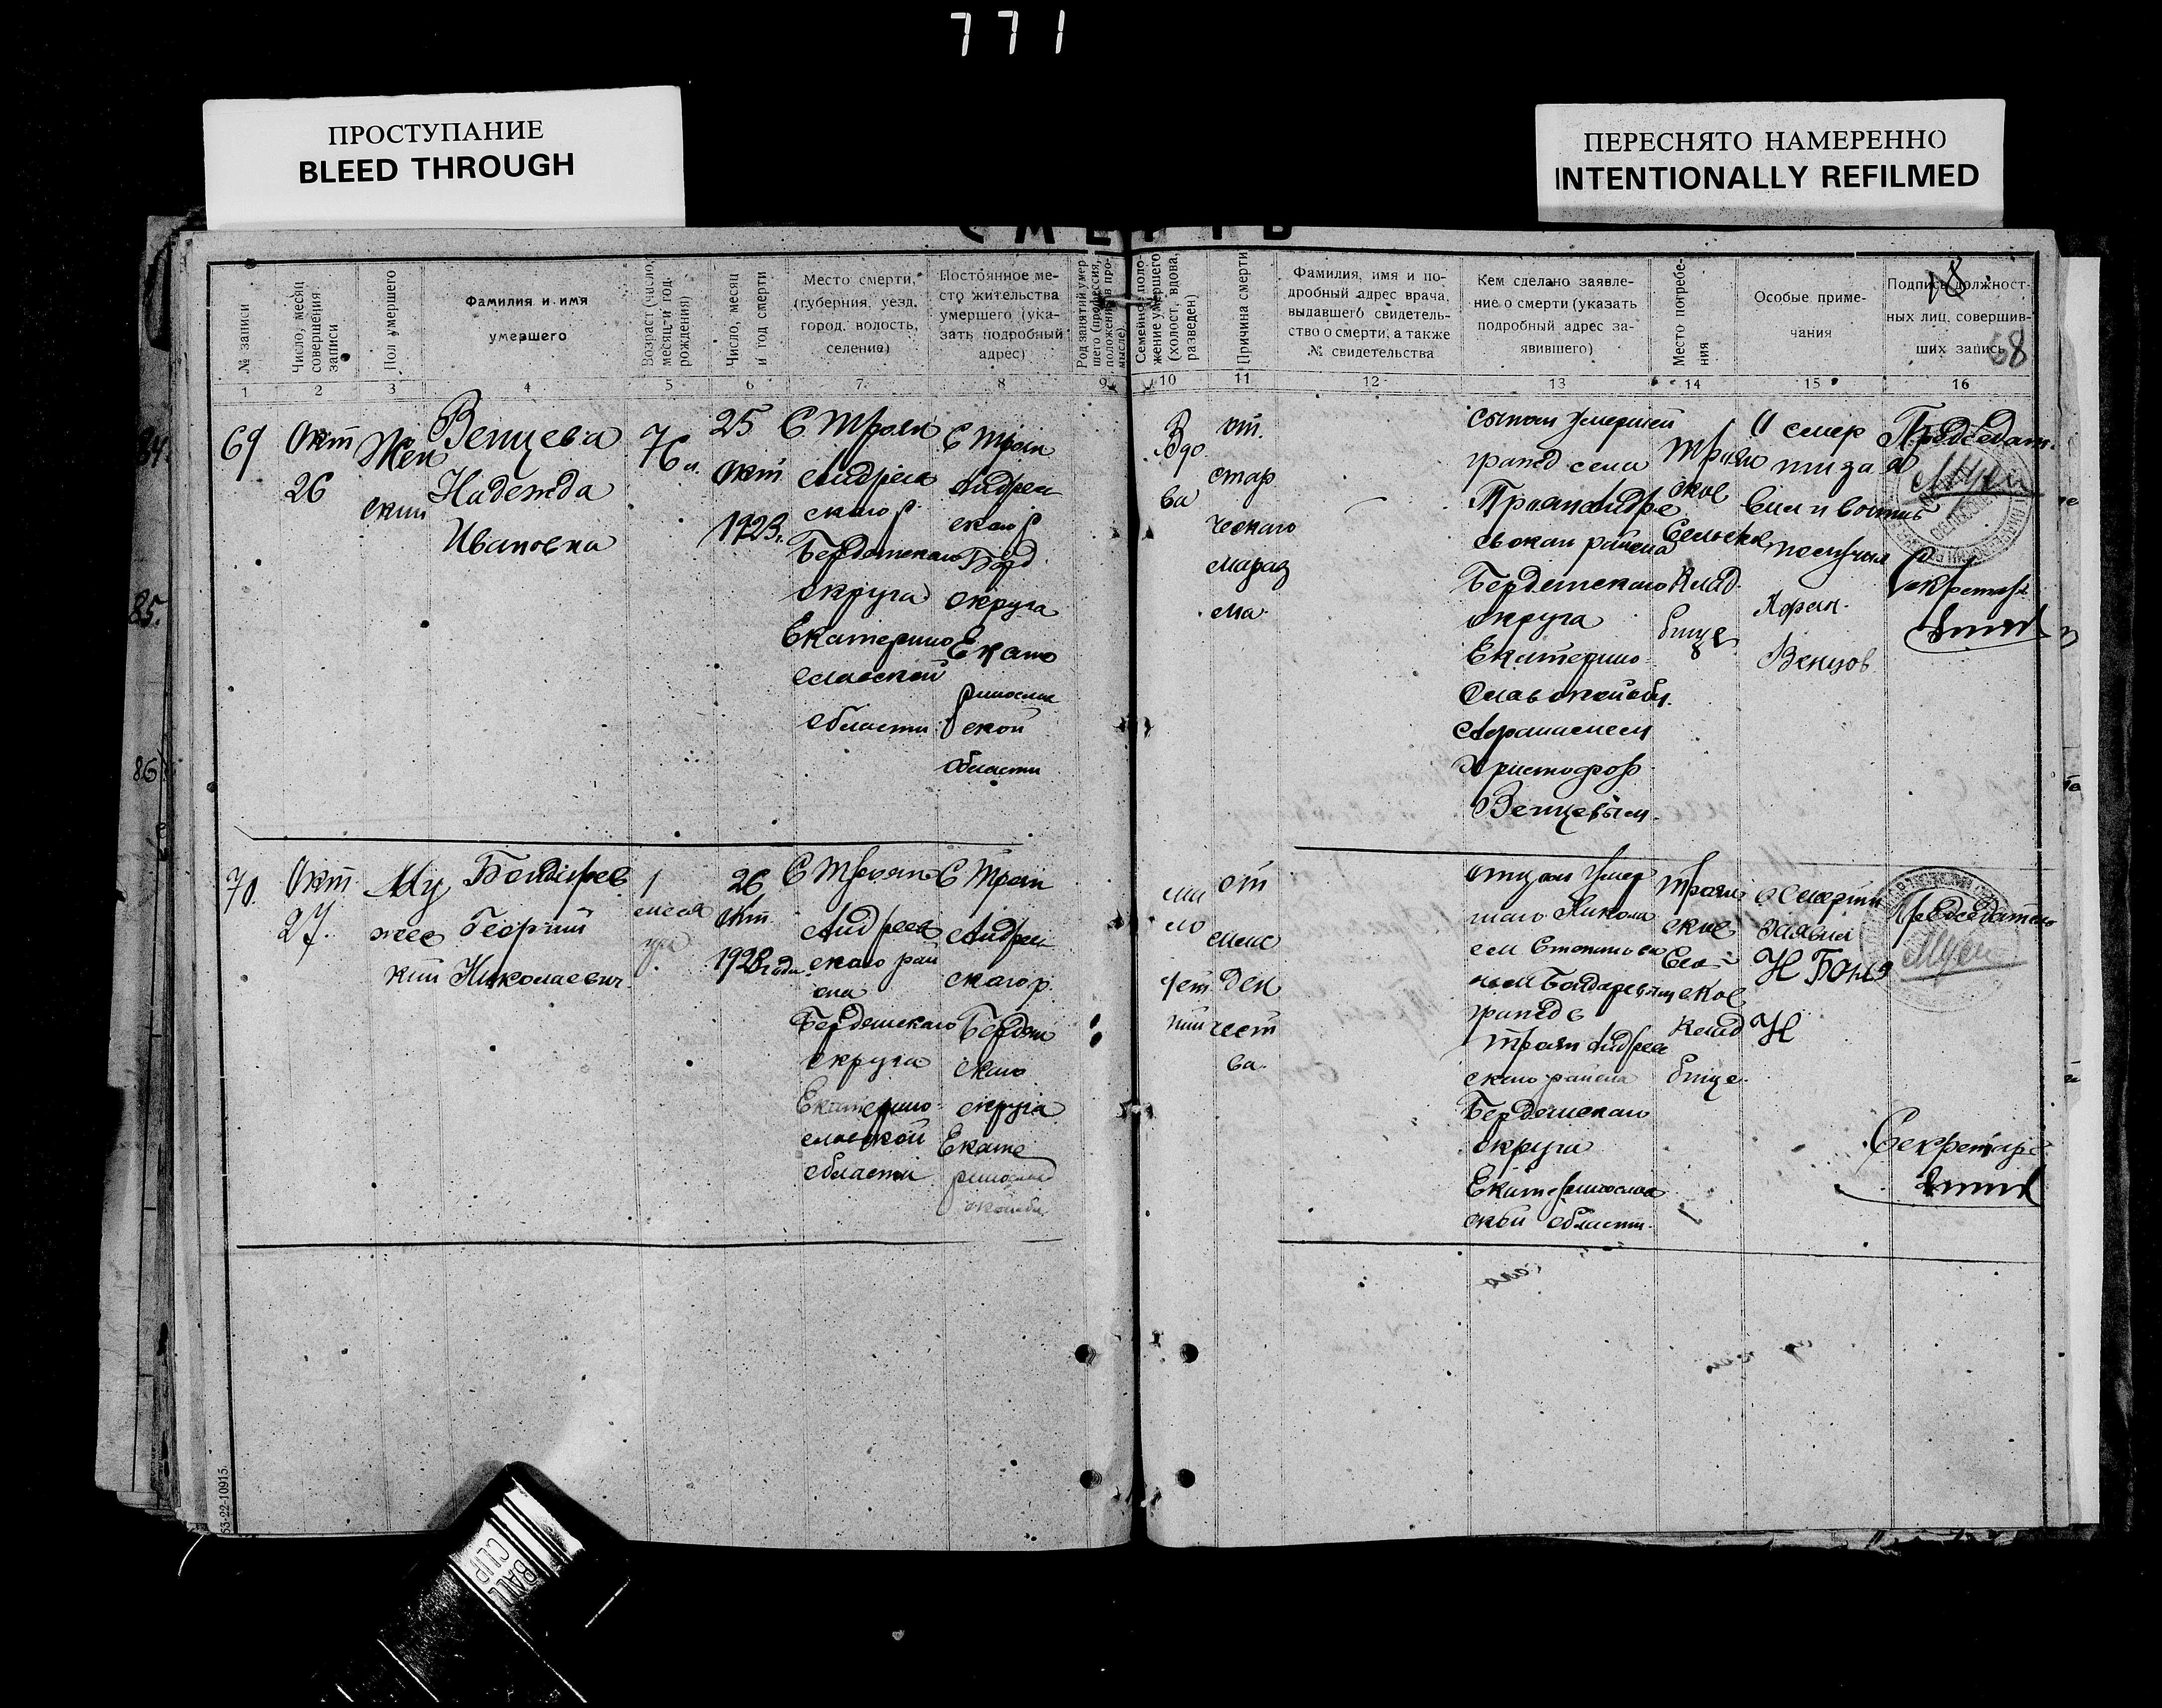 771
ПРОСТУПАНИЕ
BLEED THROUGH
ПЕРЕСНЯТО НАМЕРЕННО
INTENTIONALLY REFILMED
СМЕРТЬ
18
68
№ записи
Число, месяц совершения записи
Пол умершего
Фамилия и имя
умершего
Возраст (число, месяц и год рождения)
Число, месяц и год смерти
Место смерти,
(губерния, уезд,
город, волость,
селение)
Постоянное ме-
сто жительства
умершего (ука-
зать подробный
адрес)
Род занятий умер-
шего (профессия,
положение в про-
мысле).
Семейное поло-
жение умершего
(холост, вдова,
разведен)
Причина смерти
Фамилия, имя и по-
дробный адрес врача,
выдавшего свидетель-
ство о смерти, а также
№ свидетельства
Кем сделано заявле-
ние о смерти (указать
подробный адрес за-
явившего)
Место погребе-
ния
Особые приме-
чания
Подпись должност-
ных лиц, совершив-
ших запись
1 2 3 4 5 6 7 8 9 10 11 12 13 14 15 16
84.
85.
86
69
Окт
26
Жен
ский
Венцева
Надежда
Ивановна
76 л.
25
Окт
1923 г.
С Троян
Андреев
скаго р.
Бердянскаго
округа
Екатерино
славской
области
С Троян
Андреев
скаго р
Берд
округа
Екате
ринослав
ской
области
Вдо
ва
от.
стар
ческаго
мараз
ма.
сыном умершей
гражд села
Троян Андре
евскаи района
Бердянскаго
округа
Екатерино
славской обл.
Афанасием
Христофор
Венцевым.
Трояно
ское
Сельское
клад
бище
О смер
ти за
явил и
получил
Афан.
Венцов
Председат.
Секретарь
70.
Окт
27.
Му
жес
кий
Бондарев
Георгий
Николаевич
1
меся
ца
26
Окт
1923 года
С Трояно
Андреев
скаго рай
она
Бердянскаго
округа
Екатерино
славской
области
С Троян
Андреев
скаго р.
Бердян
скаго
округа
Екате
ринослав
ской обл.
ма
ло
лет
ний
от
мла
ден
чест
ва.
отцом умер
шаго Никола
ем
Бондаревым
гражд с
Троян Андреев
скаго района
Бердянскаго
округа
Екатеринослав
ской области.
Трояно
ское
Сель
ское
клад
бище.
О смерти
заявил
Н Бонд
Н
Председатель
Секретарь
53-22-10915.
BALL
CLIP